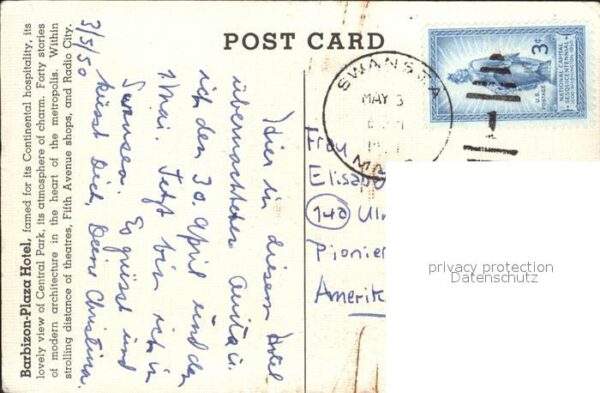 POST CARD
Barbizon-Plaza Hotel, famed for its Continental hospitality, its
lovely view of Central Park, its atmosphere of charm. Forty stories
of modern architecture in the heart of the metropolis. Within
strolling distance of theatres, Fifth Avenue shops, and Radio City.
3/5/50
Hier in diesem Hotel
übernachteten Anita u.
ich den 30. April und den
1 Mai. Jetzt bin ich in
Swansea. Es grüsst und
küsst Dich, Deine Christina.
SWANSEA
MAY 3
3¢
NATIONAL CAPITAL
SESQUICENTENNIAL
U.S. POSTAGE
Frau
Elisab
(140) Ulm
Pionier
Amerik
privacy protection
Datenschutz